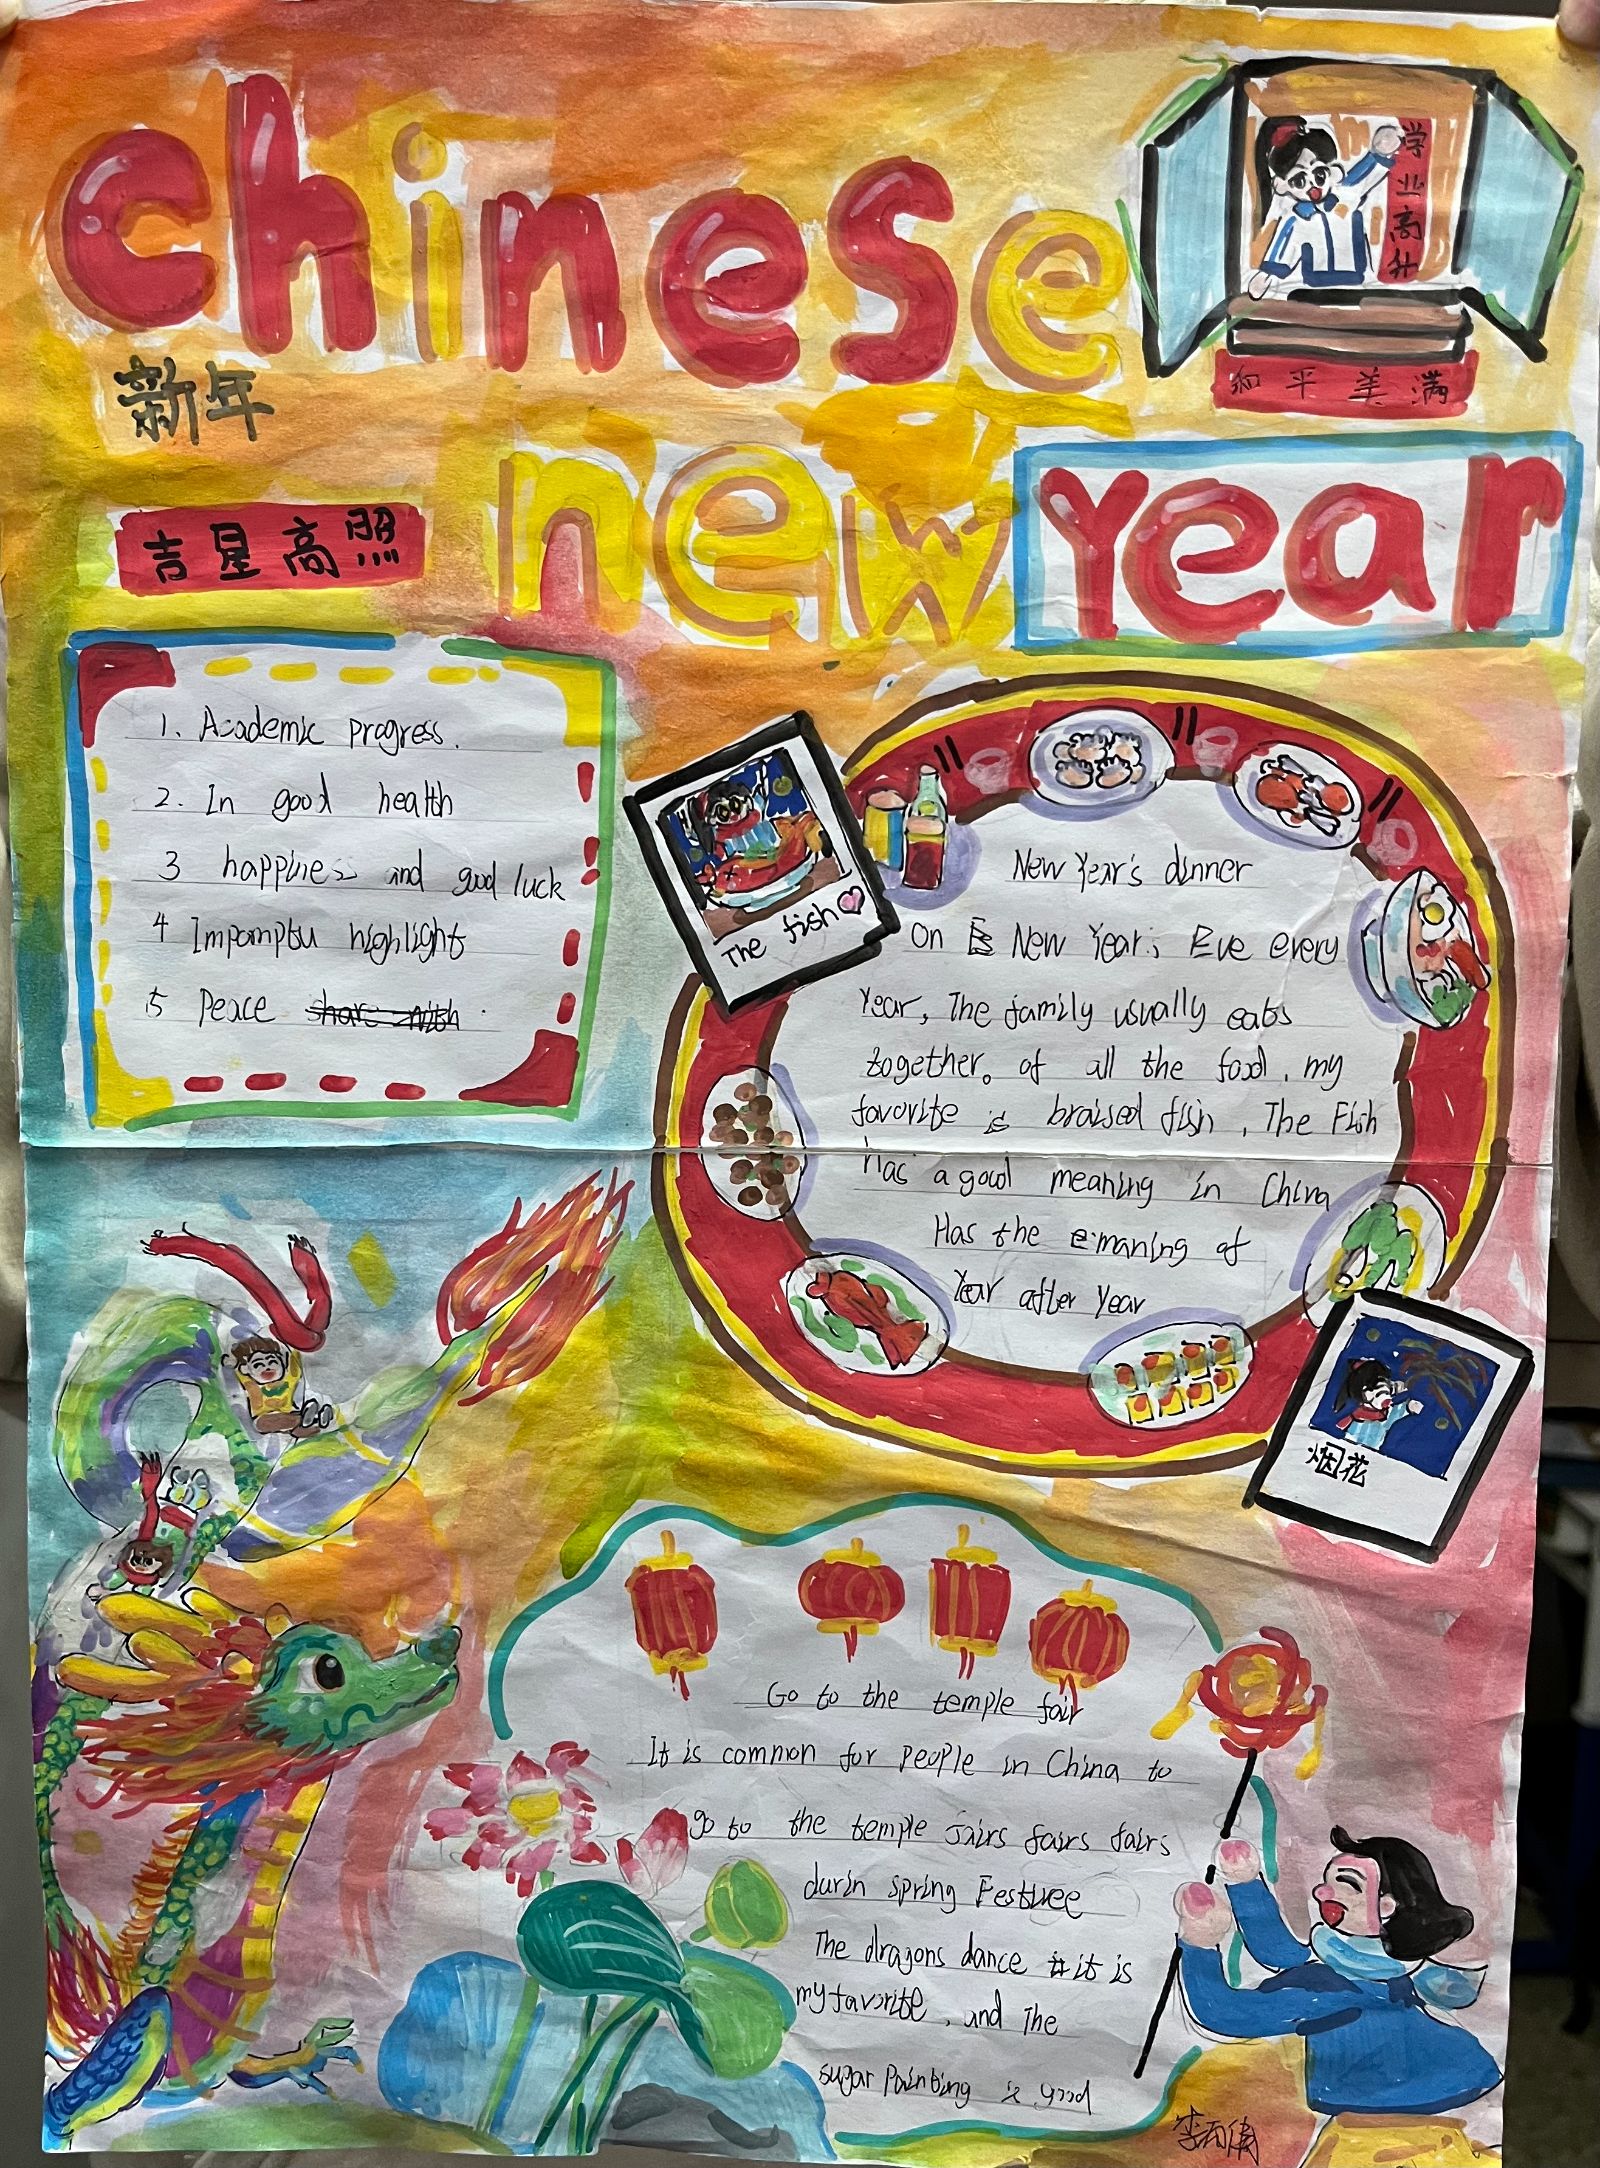 Chinese
学业高升
和平美满
新年
new Year
吉星高照
1. Academic progress.
2. In good health
3 happiness and good luck
4 Impomptu highlights
5 Peace
The fish
New Year's dinner
On New Year's Eve every
Year, The family usually eats
together。 of all the food, my
favorite is braised fish, The Fish
has a good meaning in China
Has the emaning of
Year after Year
烟花
Go to the temple fair
It is common for People in China to
go to the temple fairs fairs fairs
durin spring Festivee
The dragons dance it is
my favorite, and The
sugar Painting is good